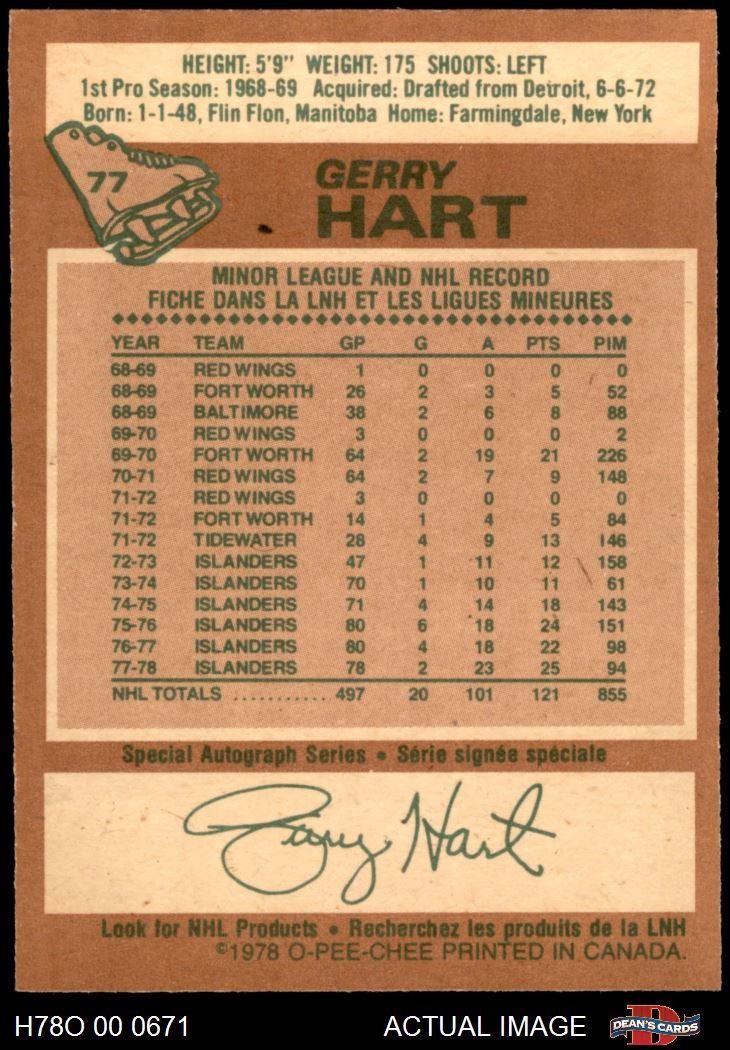 HEIGHT: 5'9" WEIGHT: 175 SHOOTS: LEFT
1st Pro Season: 1968-69 Acquired: Drafted from Detroit, 6-6-72
Born: 1-1-48, Flin Flon, Manitoba Home: Farmingdale, New York
77
GERRY
HART
MINOR LEAGUE AND NHL RECORD
FICHE DANS LA LNH ET LES LIGUES MINEURES
YEAR TEAM GP G A PTS PIM
68-69 RED WINGS 1 0 0 0 0
68-69 FORT WORTH 26 2 3 5 52
68-69 BALTIMORE 38 2 6 8 88
69-70 RED WINGS 3 0 0 0 2
69-70 FORT WORTH 64 2 19 21 226
70-71 RED WINGS 64 2 7 9 148
71-72 RED WINGS 3 0 0 0 0
71-72 FORT WORTH 14 1 4 5 84
71-72 TIDEWATER 28 4 9 13 146
72-73 ISLANDERS 47 1 11 12 158
73-74 ISLANDERS 70 1 10 11 61
74-75 ISLANDERS 71 4 14 18 143
75-76 ISLANDERS 80 6 18 24 151
76-77 ISLANDERS 80 4 18 22 98
77-78 ISLANDERS 78 2 23 25 94
NHL TOTALS ........... 497 20 101 121 855
Special Autograph Series • Série signée spéciale
Gerry Hart
Look for NHL Products • Recherchez les produits de la LNH
©1978 O-PEE-CHEE PRINTED IN CANADA.
H78O 00 0671 ACTUAL IMAGE DEAN'S CARDS